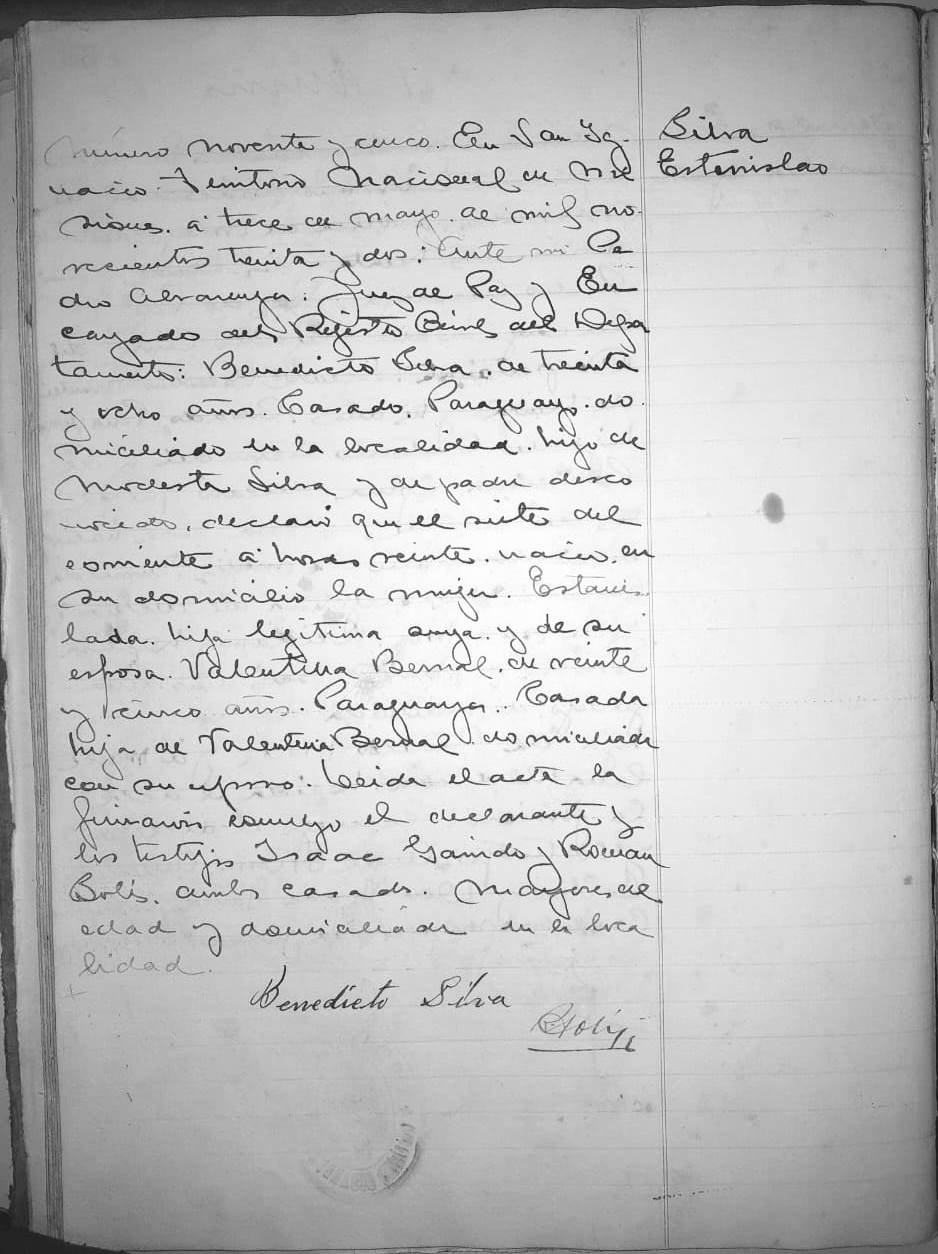 Silva
Estanislao
Número noventa y cinco. En San Ig-
nacio. Territorio Nacional de Mi
siones. á trece de mayo. de mil no-
vecientos treinta y dos: Ante mi Pe
dro Alvarenga. Juez de Paz y En
cargado del Rejistro Civil del Depar
tamento: Benedicto Silva. de treinta
y ocho años. Casado. Paraguayo. do
miciliado en la localidad. hijo de
Modesta Silva y de padre desco
nocido. declaró que el siete del
corriente á horas veinte. nació. en
su domicilio la mujer. Estanis-
lada. hija legitima suya. y de su
esposa. Valentina Bernal. de veinte
y cinco años. Paraguaya. Casada
hija de Valentina Bernal. domiciliada
con su esposo: Leida el acta la
firmaron conmigo el declarante y
los testigos Isaac Garrido y Roman
Solis. ambos casados. Mayores de
edad y domiciliados en la loca
lidad.
Benedicto Silva
RSolis